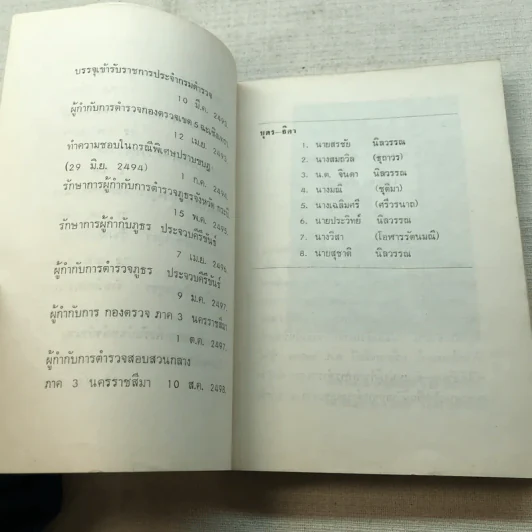 บรรจุเข้ารับราชการประจำกรมตำรวจ
10 มี.ค. 2492
ผู้กำกับการตำรวจกองตรวจเขต 5 ฉะเชิงเทรา
12 เม.ย. 2493
ทำความชอบในกรณีพิเศษปราบขบฎ
(29 มิ.ย. 2494)
1 ก.ค.
รักษาการผู้กำกับการตำรวจภูธรจังหวัด กระบี่
15 พ.ค. 2495
รักษาการผู้กำกับภูธร ประจวบคีรีขันธ์
7 เม.ย. 2496
ผู้กำกับการตำรวจภูธร ประจวบคีรีขันธ์
9 ม.ค. 2497
ผู้กำกับการ กองตรวจ ภาค 3 นครราชสีมา
1 ต.ค. 2497
ผู้กำกับการตำรวจสอบสวนกลาง
ภาค 3 นครราชสีมา 10 ส.ค. 2498
บุตร-ธิดา
1. นายสรชัย นิลวรรณ
2. นางสมถวิล (ชูถาวร)
3. น.ต. จินดา นิลวรรณ
4. นางมณี (ชุติมา)
5. นางเฉลิมศรี (ศรีวรนาถ)
6. นายประวิทย์ นิลวรรณ
7. นางวิสา (โอฬารรัตนมณี)
8. นายสุชาติ นิลวรรณ